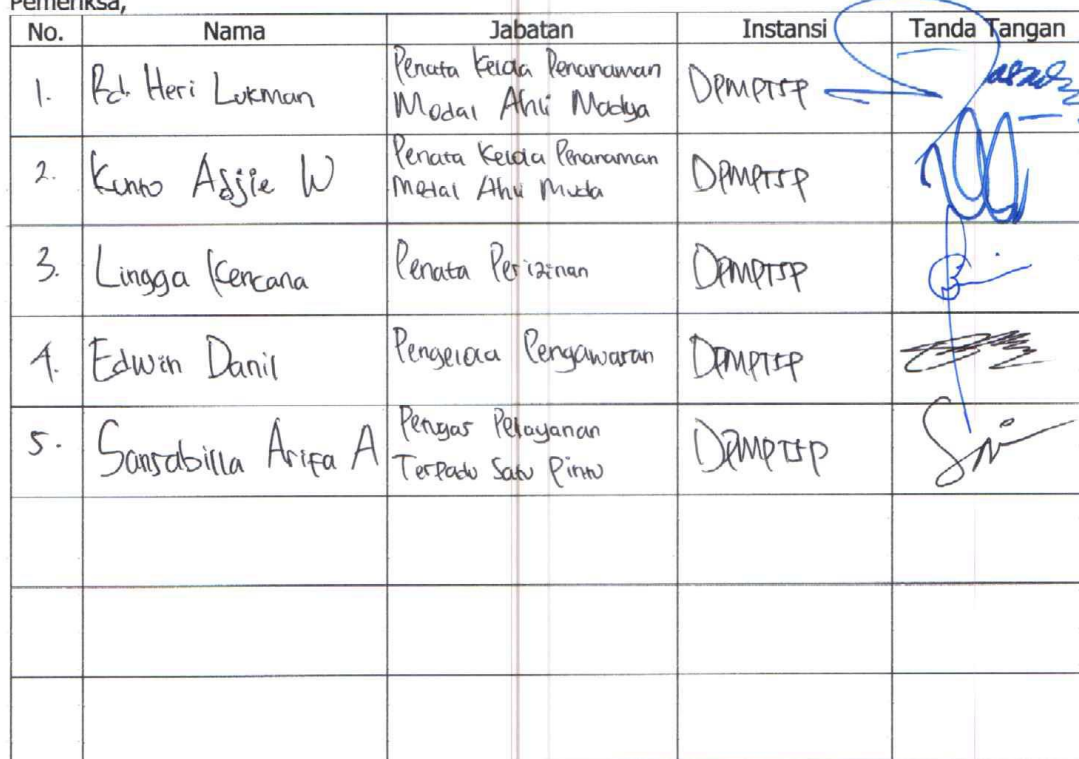 Pemeriksa,
No. Nama Jabatan Instansi Tanda Tangan
1. Rd. Heri Lukman Penata Kelola Penanaman Modal Ahli Madya DPMPTSP
2. Kunto Adjie W Penata Kelola Penanaman Modal Ahli Muda DPMPTSP
3. Lingga Kencana Penata Perizinan DPMPTSP
4. Edwin Danil Pengelola Pengawasan DPMPTSP
5. Sansabilla Arifa A Pengas Pelayanan Terpadu Satu Pintu DPMPTSP